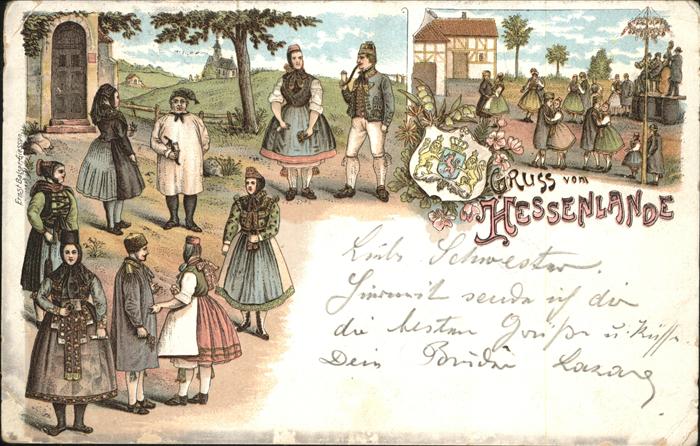 Ernst Balser, Gießen
GRUSS vom
HESSENLANDE
Liebe Schwester.
Hiermit sende ich dir
die besten Grüße u. Küsse
Dein Bruder